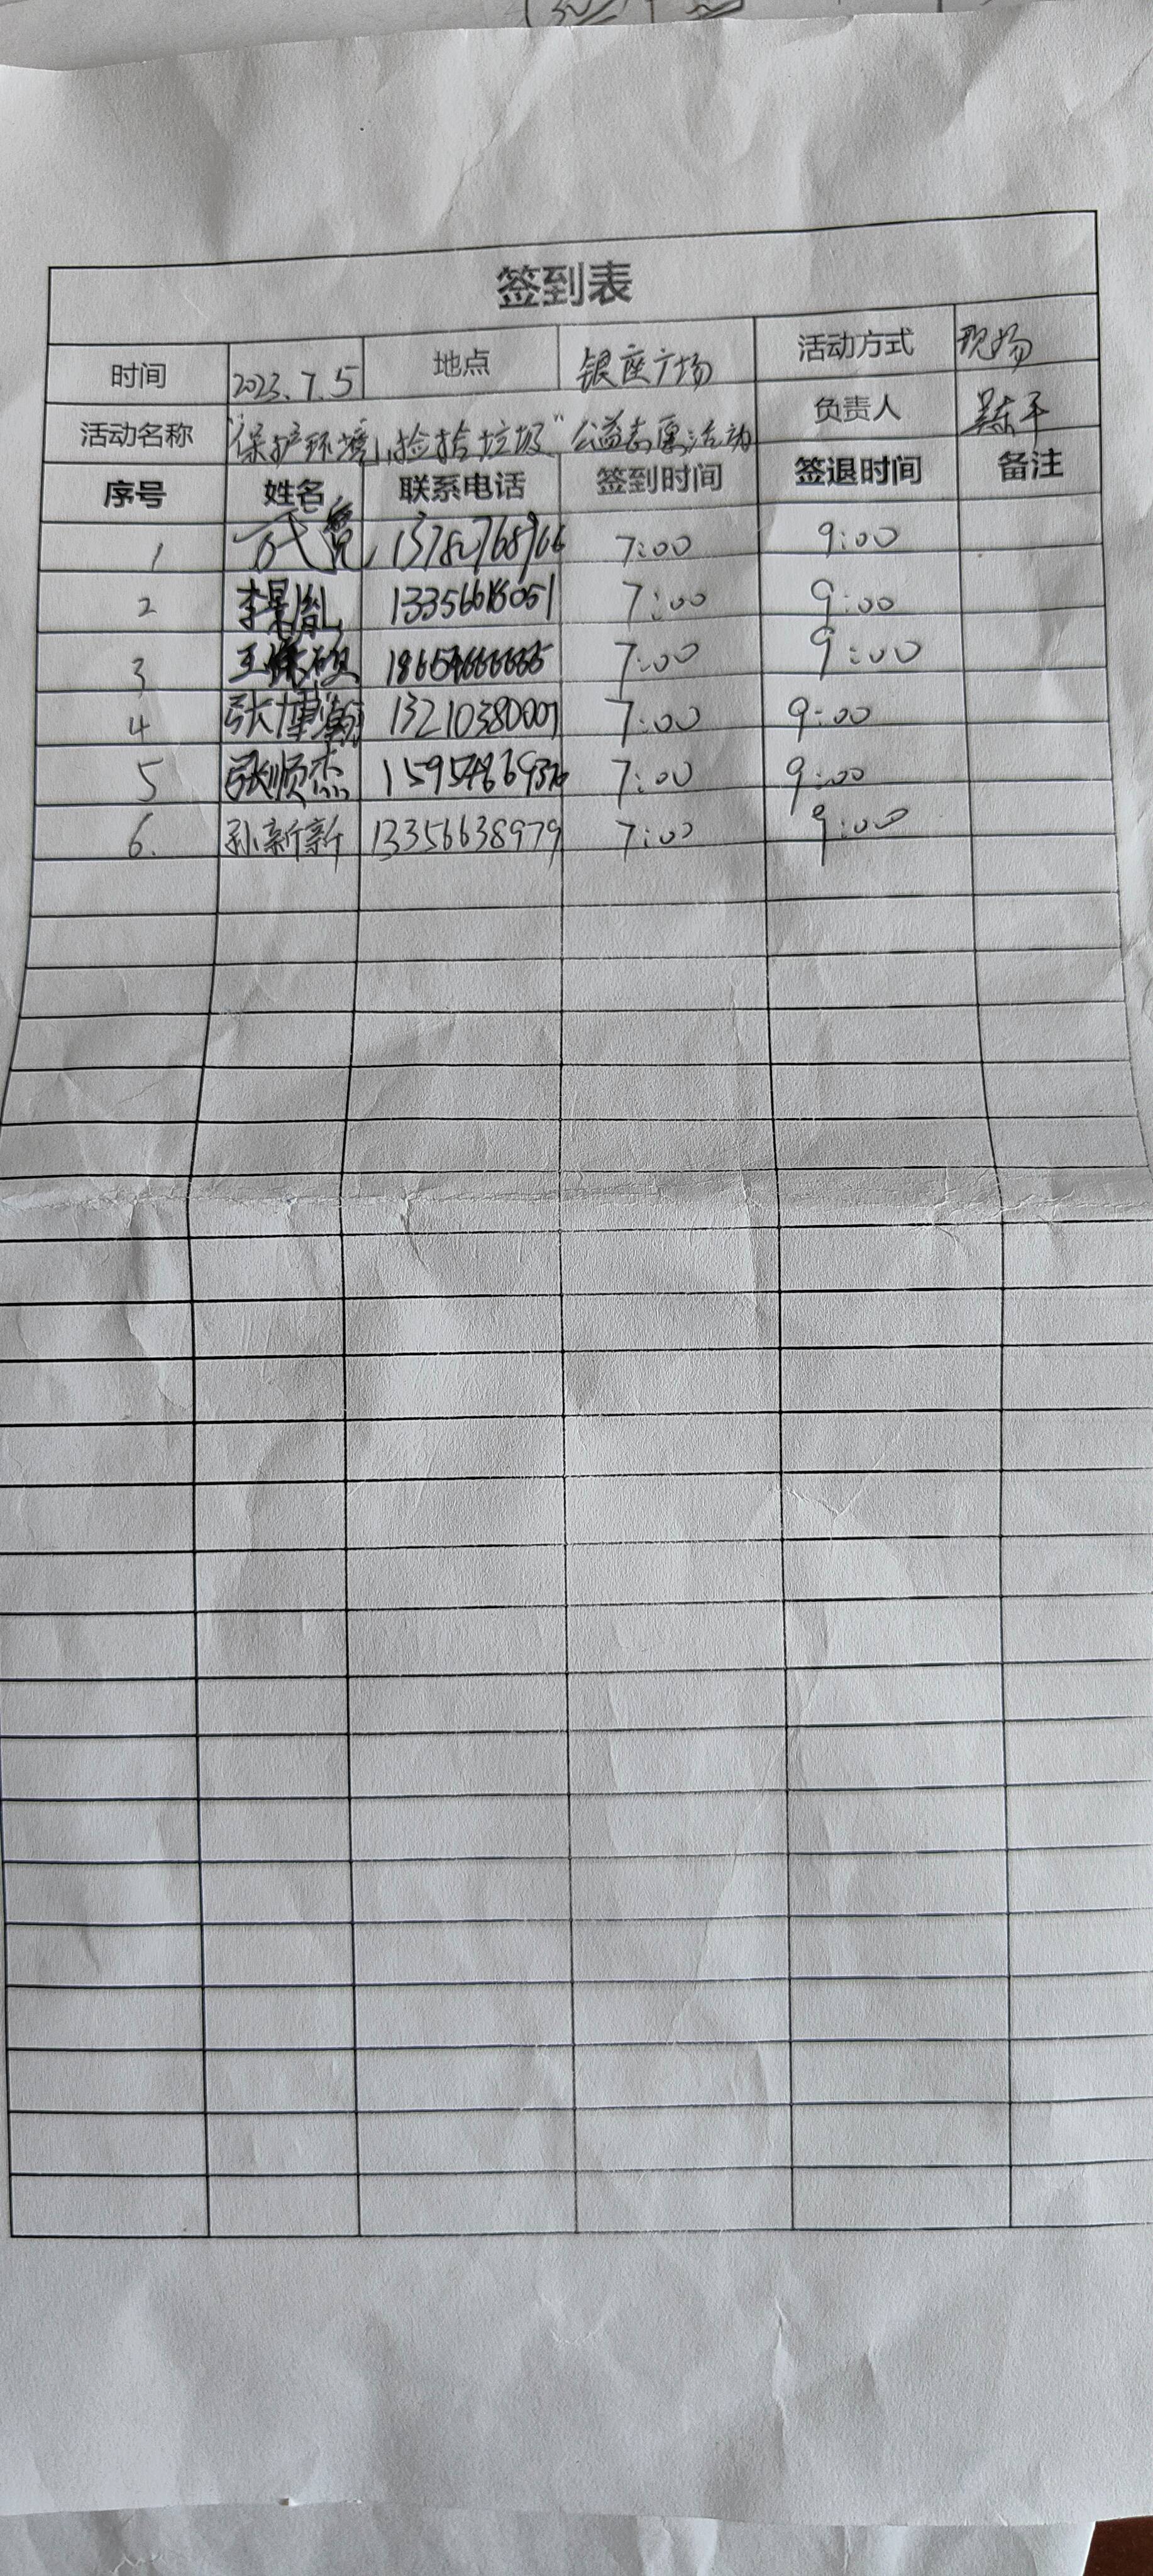 签到表
时间 2023.7.5 地点 银座广场 活动方式 现场
活动名称 "保护环境,捡拾垃圾"公益志愿活动 负责人
序号 姓名 联系电话 签到时间 签退时间 备注
1 7:00 9:00
2 李昊胤 7:00 9:00
3 7:00 9:00
4 张博瀚 13210380007 7:00 9:00
5 张顺杰 7:00 9:00
6. 孙新新 13356638979 7:00 9:00